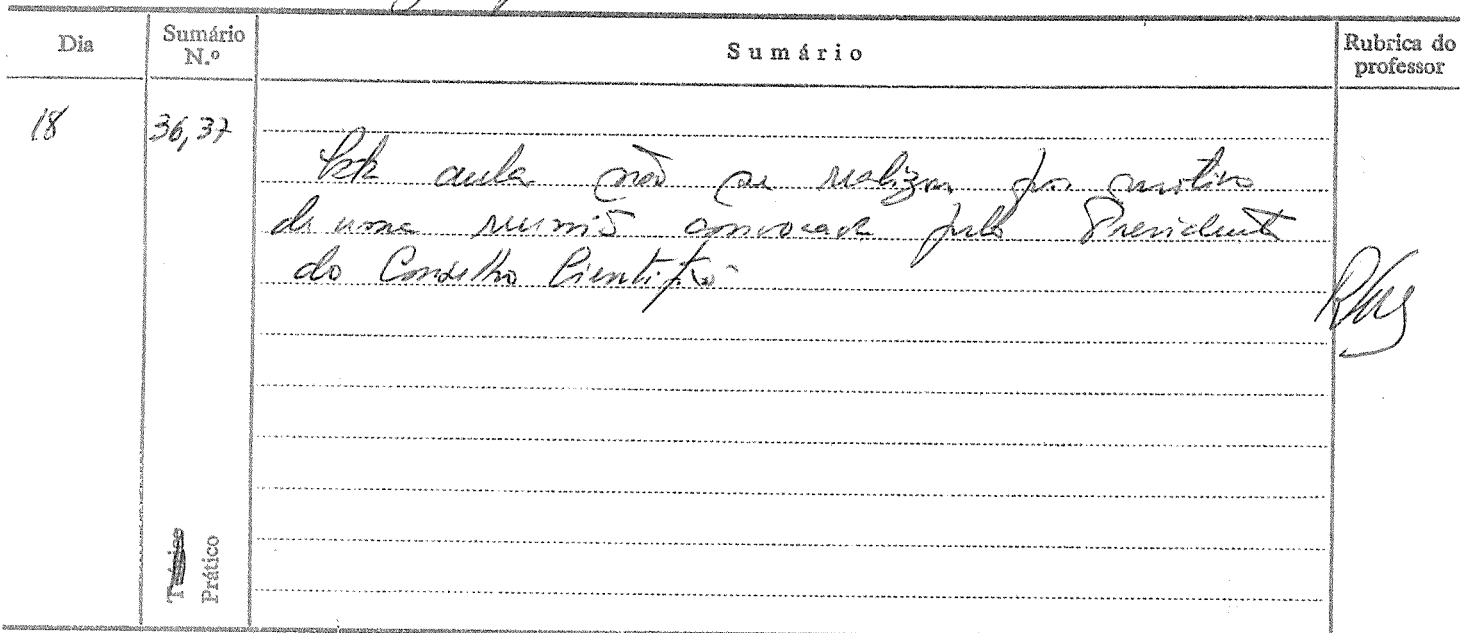 Dia
Sumário N.º
Sumário
Rubrica do professor
18
36, 37
Esta aula não se realizou por motivo
de uma reunião convocada pelo Presidente
do Conselho Científico
Teórico
Prático